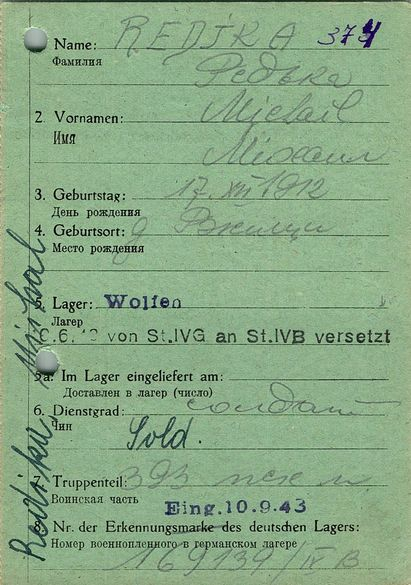 Name: REDIKA 374
Фамилия Редька
2. Vornamen: Michail
Имя Михаил
3. Geburtstag: 17. XII 1912
День рождения
4. Geburtsort: д
Место рождения
5. Lager: Wolfen
Лагер
von St.IVG an St.IVB versetzt
5a. Im Lager eingeliefert am:
Доставлен в лагер (число)
6. Dienstgrad: солдат
Чин Sold.
7. Truppenteil: 393
Воинская часть
Eing. 10.9.43
8. Nr. der Erkennungsmarke des deutschen Lagers:
Номер военнопленного в германском лагере
169139/IV B
Redika,